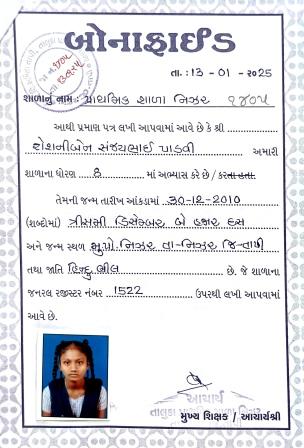 બોનાફાઈડ
તા. : 13 - 01 - 2025
શાળાનું નામ : પ્રાથમિક શાળા નિઝર
આથી પ્રમાણ પત્ર લખી આપવામાં આવે છે કે શ્રી
રોશનીબેન સંજયભાઈ પાડવી અમારી
શાળાના ધોરણ 8 માં અભ્યાસ કરે છે / કરતા હતા.
તેમની જન્મ તારીખ આંકડામાં 30-12-2010
(શબ્દોમાં) ત્રીસમી ડિસેમ્બર બે હજાર દસ
અને જન્મ સ્થળ મુ.પો. નિઝર તા-નિઝર જિ-તાપી
તથા જાતિ હિન્દુ ભીલ છે. જે શાળાના
જનરલ રજીસ્ટર નંબર 1522 ઉપરથી લખી આપવામાં
આવે છે.
આચાર્ય
મુખ્ય શિક્ષક / આચાર્યશ્રી